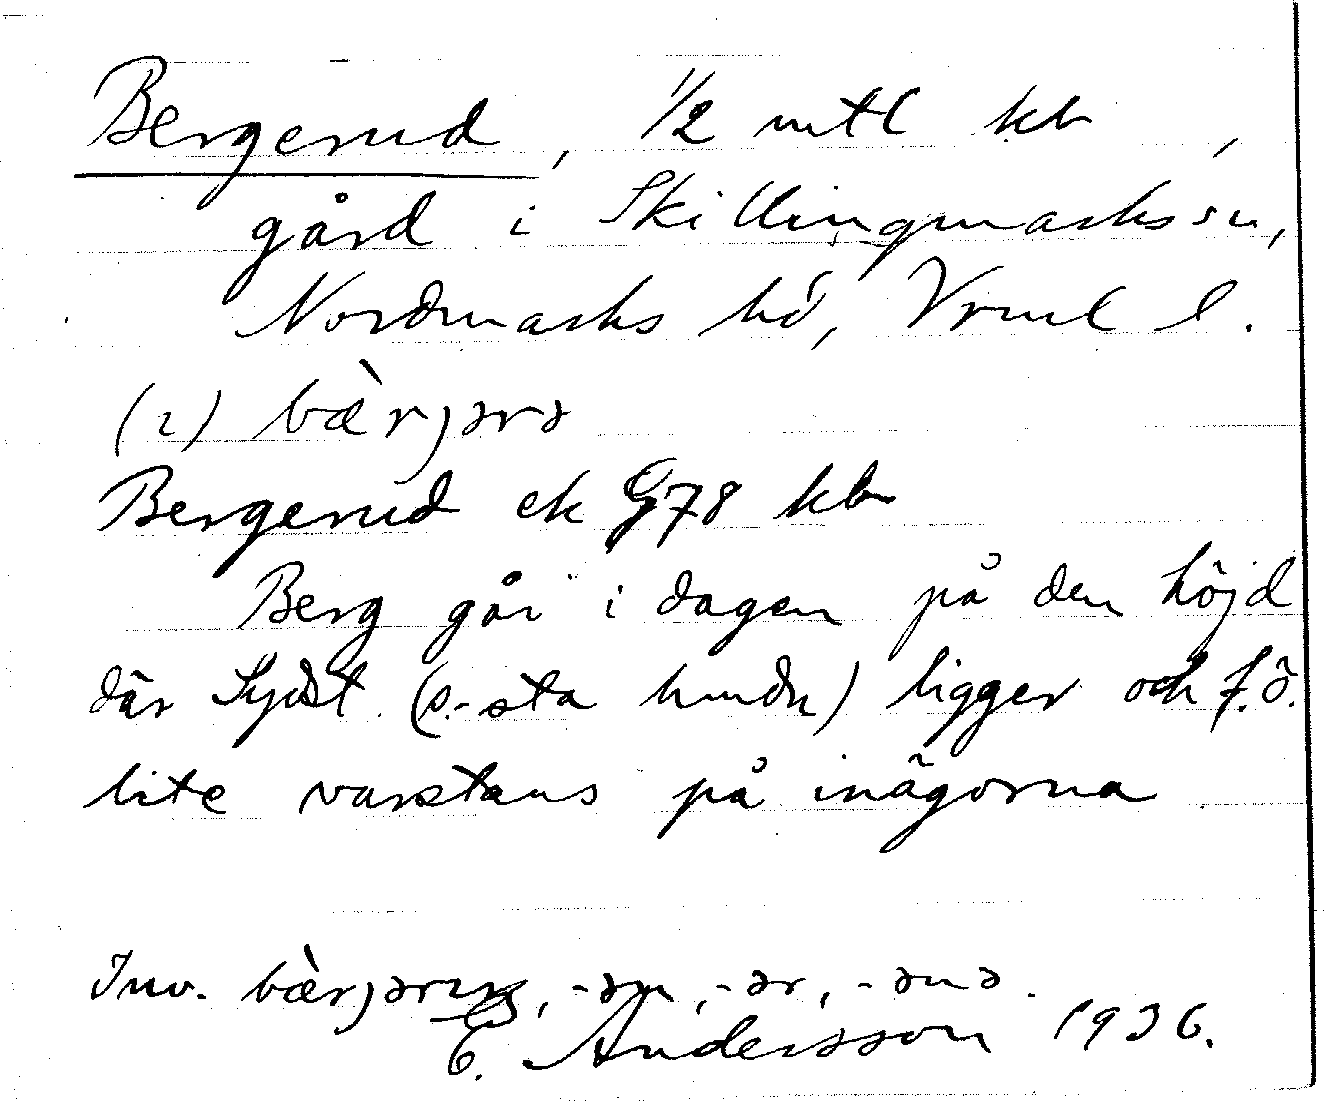 Bergerud, 1/2 mtl kb,
gård i Skillingmarks sn,
Nordmarks hd, Vrml l.
(i) bæ̀rjərə
Bergerud ek G78 kb
Berg går i dagen på den höjd
där Sydst. (s.-sta hmdn) ligger och f.ö.
lite varstans på inägorna
Inv. bæ̀rjərɪŋ, -ən, -ər, -ənə.
E. Andersson 1936.